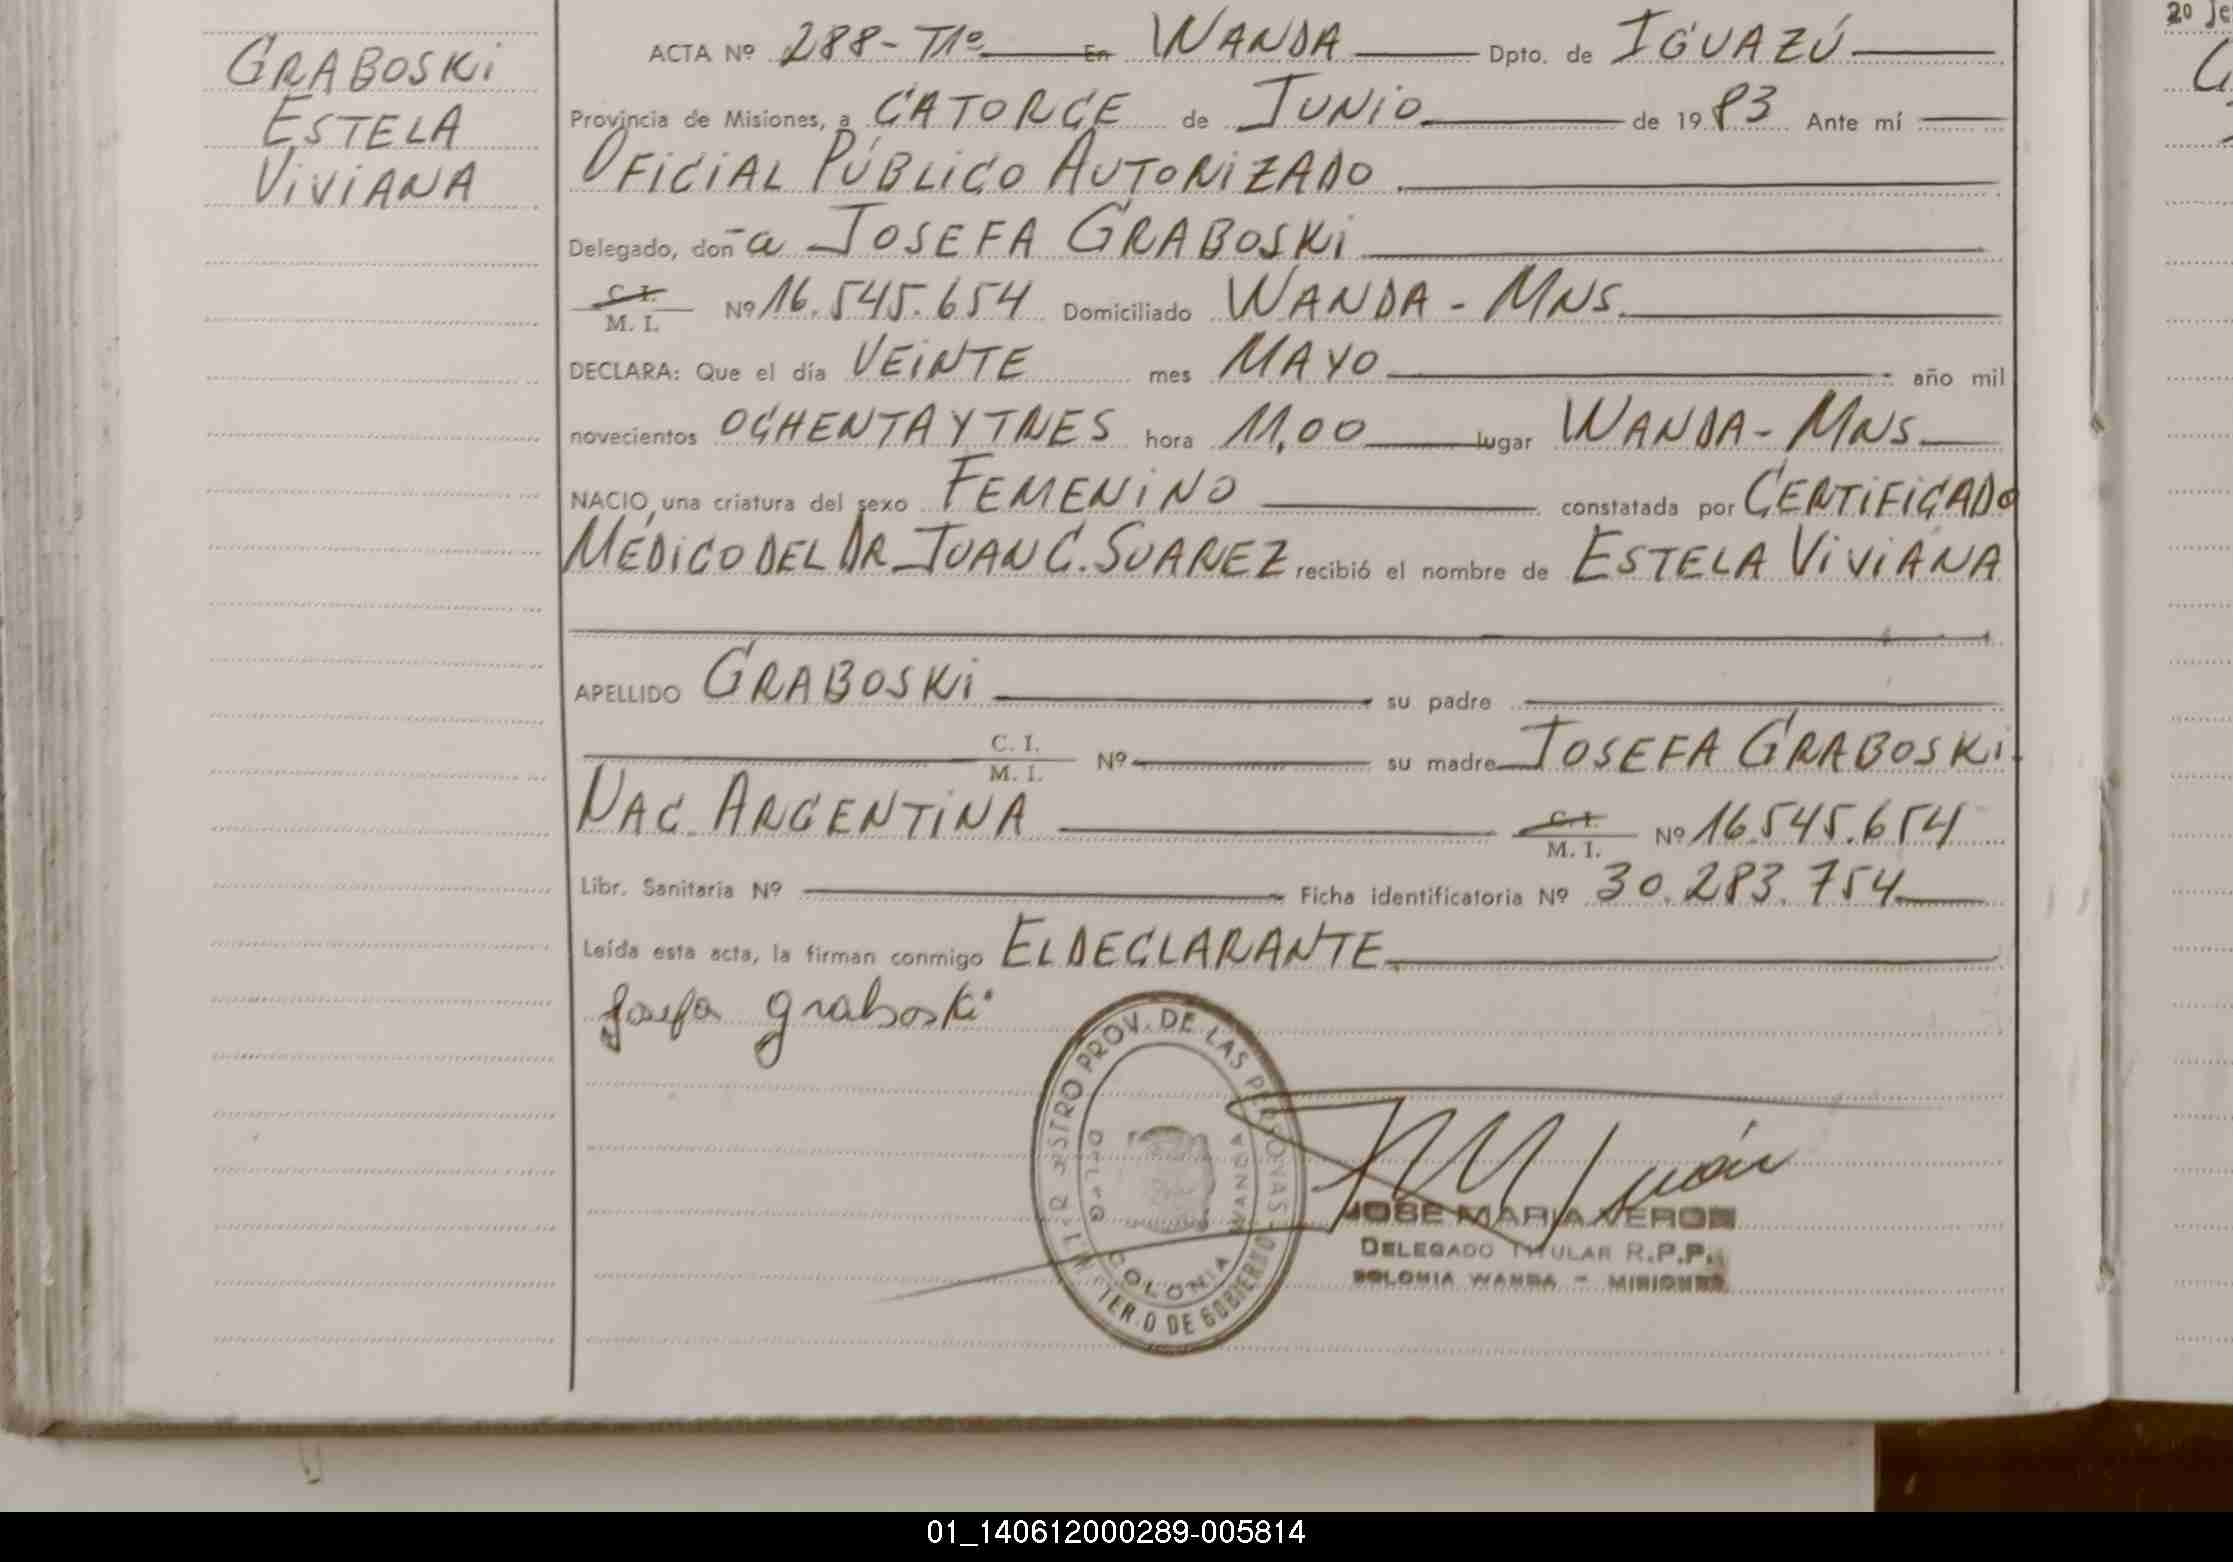 GRABOSKI
ESTELA
VIVIANA
ACTA Nº 288-T1º En WANDA Dpto. de IGUAZÚ
Provincia de Misiones, a CATORCE de JUNIO de 1983 Ante mí
OFICIAL PÚBLICO AUTORIZADO
Delegado, don-a JOSEFA GRABOSKI
C. I.
M. I. Nº 16.545.654 Domiciliado WANDA - MNS.
DECLARA: Que el día VEINTE mes MAYO año mil
novecientos OCHENTA Y TRES hora 11,00 lugar WANDA - MNS
NACIO una criatura del sexo FEMENINO constatada por CERTIFICADO
MÉDICO DEL DR. JUAN C. SUAREZ recibió el nombre de ESTELA VIVIANA
APELLIDO GRABOSKI su padre
C. I.
M. I. Nº su madre JOSEFA GRABOSKI
NAC. ARGENTINA C. I.
M. I. Nº 16.545.654
Libr. Sanitaria Nº Ficha identificatoria Nº 30.283.754
Leída esta acta, la firman conmigo EL DECLARANTE
Josefa graboski
PROV. DE LAS PERSONAS
DE GOBIERNO
COLONIA WANDA
JOSE MARIA VERON
DELEGADO TITULAR R.P.P.
COLONIA WANDA - MISIONES
2º
01_140612000289-005814